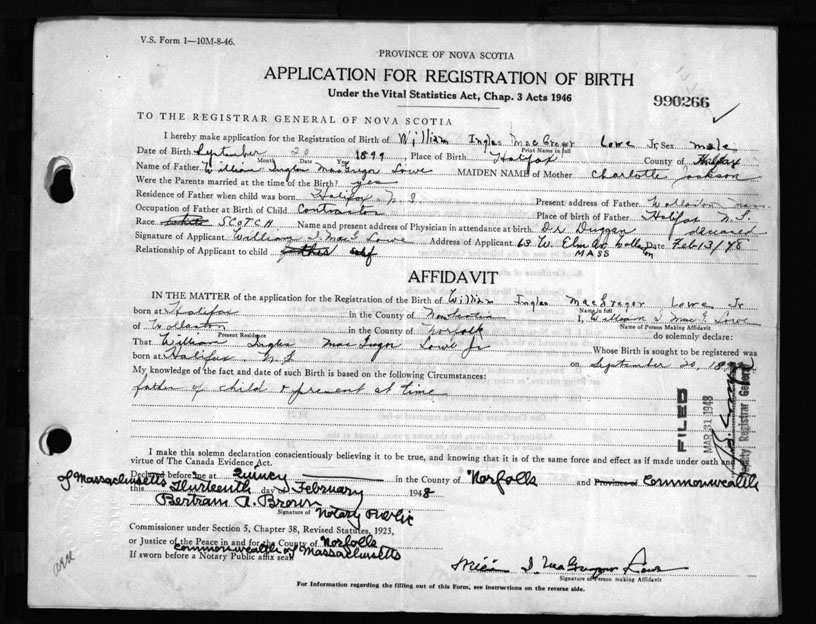 V.S. Form 1—10M-8-46.
PROVINCE OF NOVA SCOTIA
APPLICATION FOR REGISTRATION OF BIRTH
Under the Vital Statistics Act, Chap. 3 Acts 1946
990266
TO THE REGISTRAR GENERAL OF NOVA SCOTIA
I hereby make application for the Registration of Birth of William Ingles MacGregor Lowe Jr. Sex male
Print Name in full
Date of Birth September 20 1899 Place of Birth Halifax County of Halifax
Month Date Year
Name of Father William Ingles MacGregor Lowe MAIDEN NAME of Mother Charlotte Jackson
Were the Parents married at the time of the Birth? yes
Residence of Father when child was born Halifax N.S. Present address of Father Wollaston Mass.
Occupation of Father at Birth of Child Contractor Place of birth of Father Halifax N.S.
Race white SCOTCH Name and present address of Physician in attendance at birth. Dr Duggan deceased
Signature of Applicant William I. MacG Lowe Address of Applicant 63 W. Elm Av Wollaston Date Feb 13/48
MASS
Relationship of Applicant to child self
AFFIDAVIT
IN THE MATTER of the application for the Registration of the Birth of William Ingles MacGregor Lowe Jr
Name in full
born at Halifax in the County of Nova Scotia I, William I MacG Lowe
Name of Person Making Affidavit
of Wollaston in the County of Norfolk do solemnly declare:
Present Residence
That William Ingles MacGregor Lowe Jr Whose Birth is sought to be registered was
born at Halifax N.S. on September 20, 1899
My knowledge of the fact and date of such Birth is based on the following Circumstances:
father of child & present at time
FILED
MAR 31 1948
Deputy Registrar General
I make this solemn declaration conscientiously believing it to be true, and knowing that it is of the same force and effect as if made under oath and by
virtue of The Canada Evidence Act.
Declared before me at Quincy in the County of Norfolk and Province of Commonwealth
of Massachusetts this Thirteenth day of February 1948
Bertram A. Brown
Signature of Notary Public
Commissioner under Section 5, Chapter 38, Revised Statutes, 1923,
or Justice of the Peace in and for the County of Norfolk
Commonwealth of Massachusetts
If sworn before a Notary Public affix seal
I. MacGregor Lowe
Signature of Person making Affidavit
For Information regarding the filling out of this Form, see instructions on the reverse side.